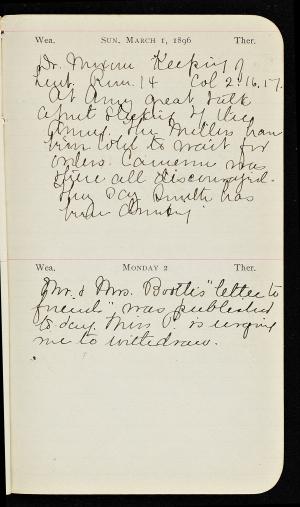 Wea. SUN. MARCH 1, 1896 Ther.
Dr. Keeping of
Lent. Rom. 14 Col 2:16.17.
At Army great talk
about of the
Army. The Millers have
been told to wait for
orders. Cameron was
there all discouraged.
They say Smith has
been
Wea. MONDAY 2 Ther.
Mr. & Mrs. Booth's "letter to
friends" was published
to day. Miss P. is urging
me to withdraw.